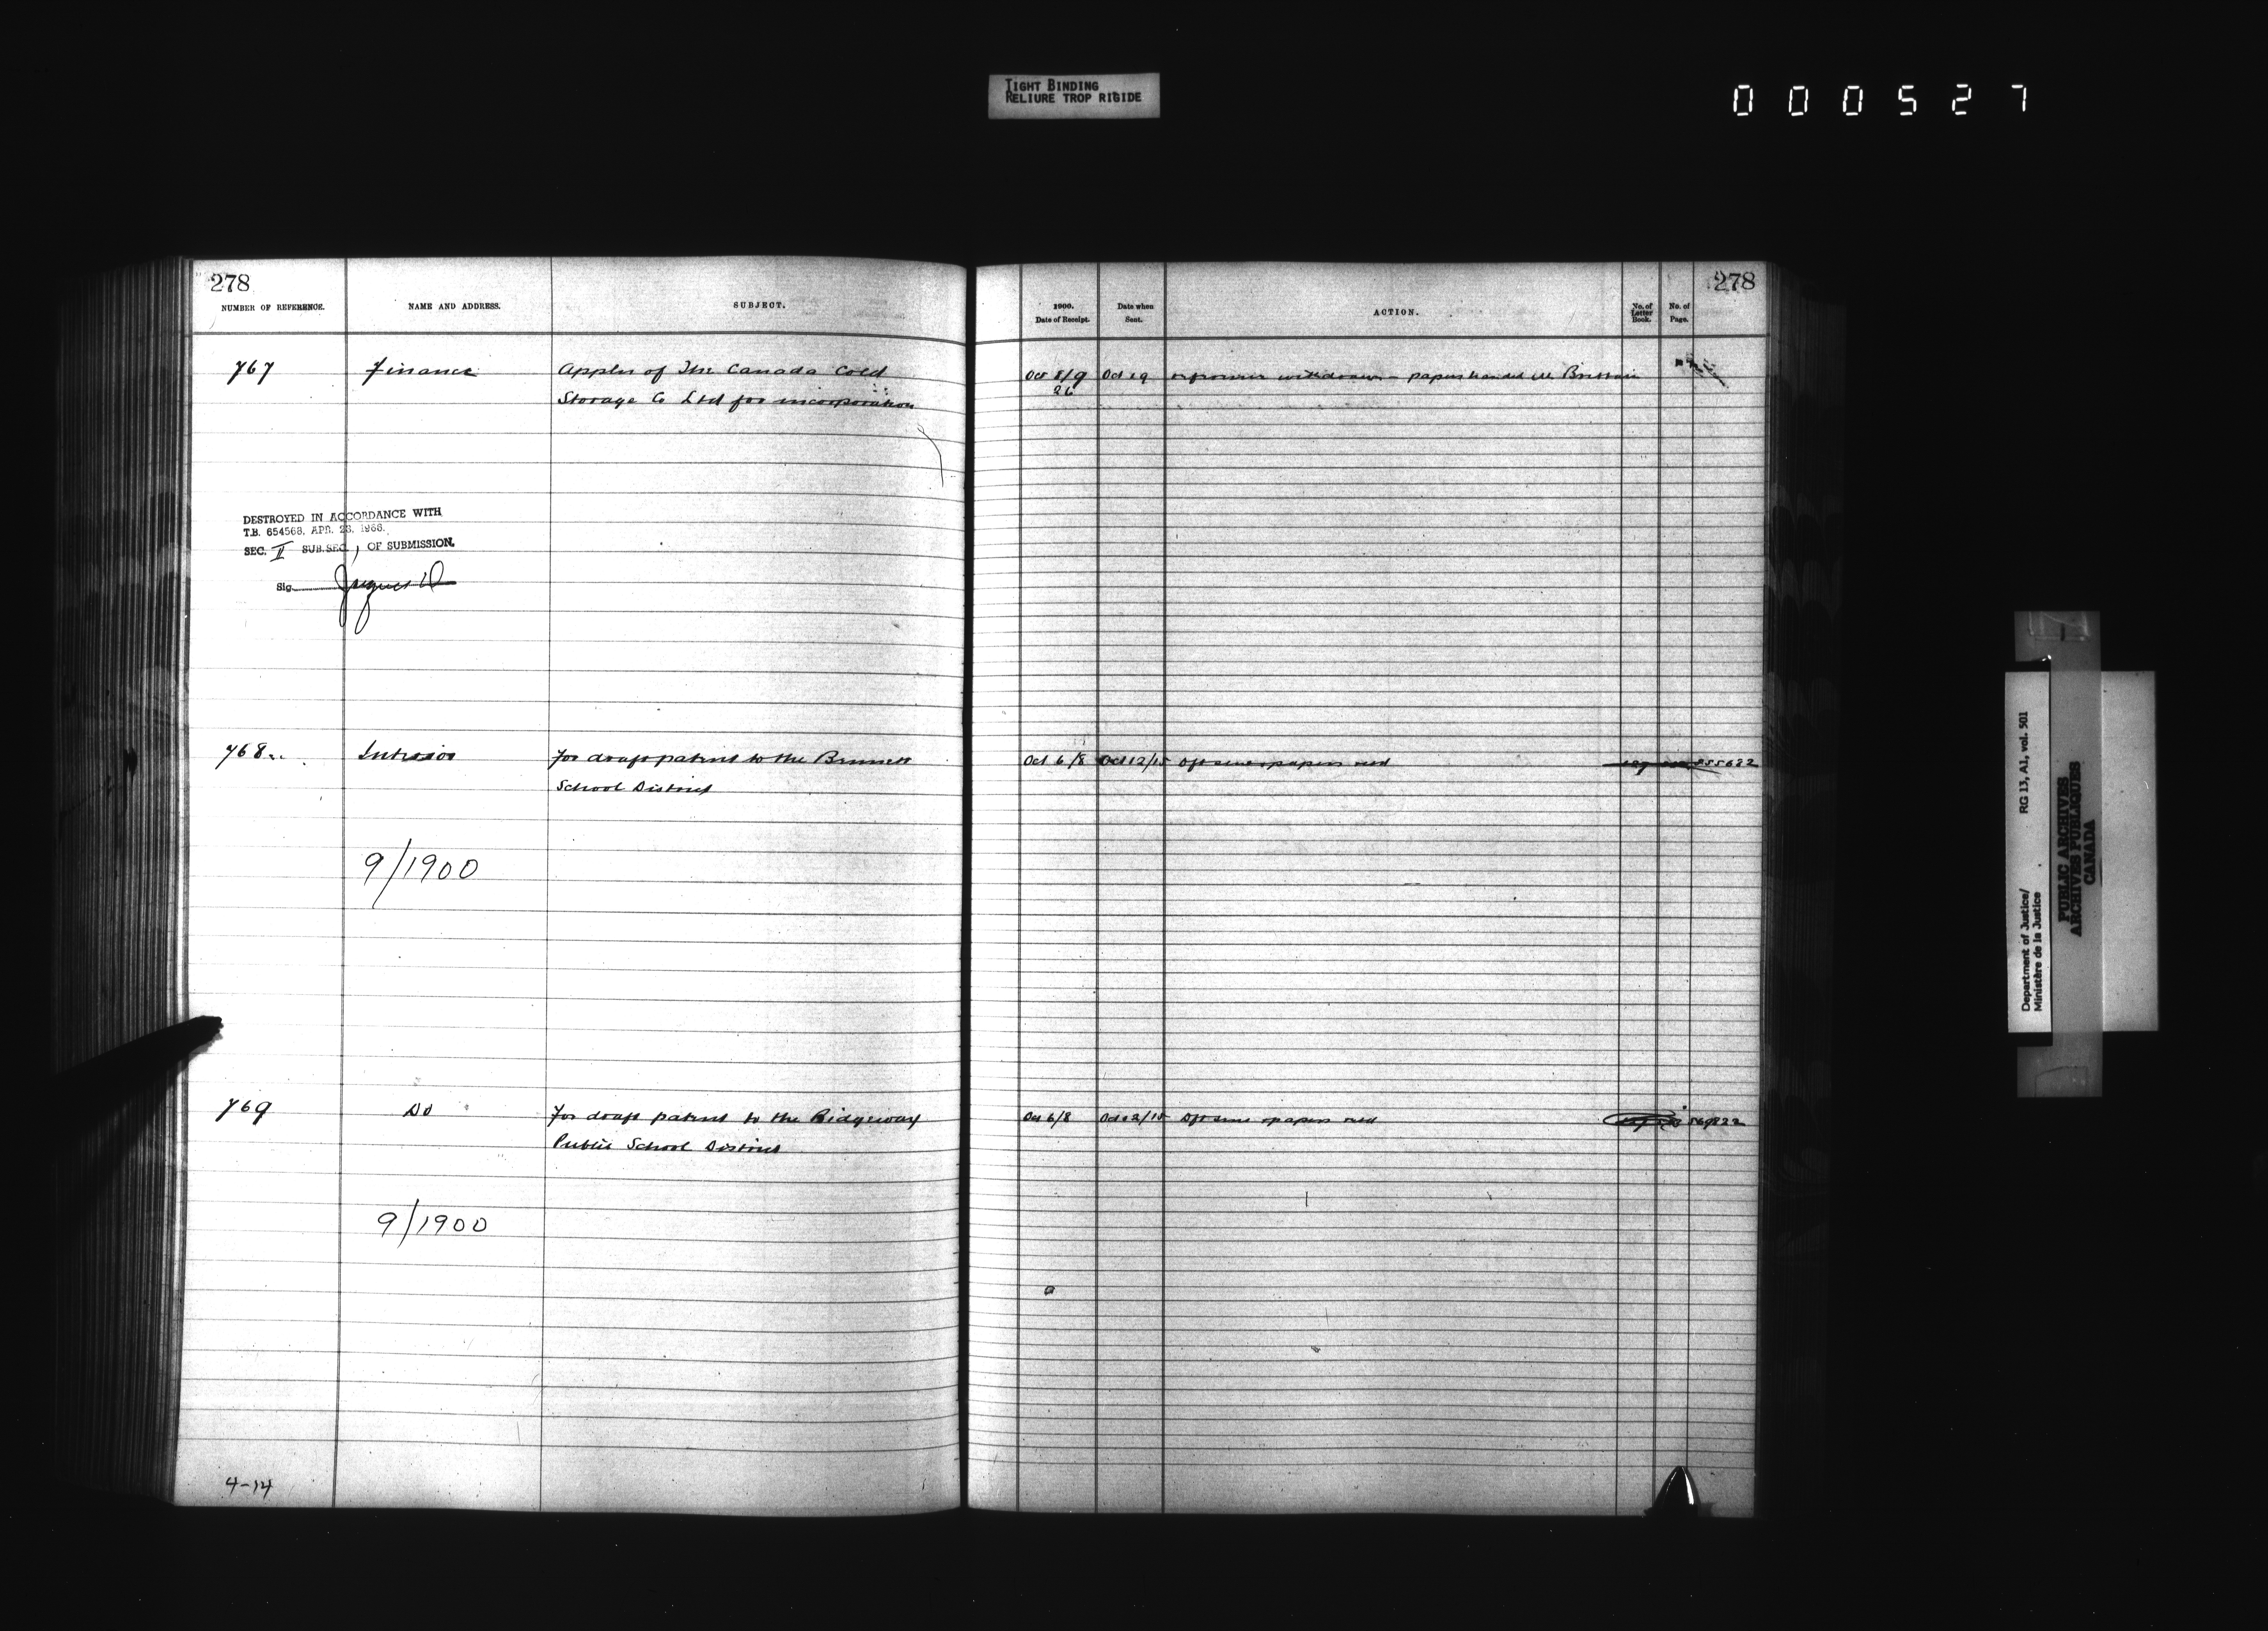 TIGHT BINDING
RELIURE TROP RIGIDE
000527
278
NUMBER OF REFERENCE. NAME AND ADDRESS. SUBJECT.
278
1900. Date of Receipt. Date when Sent. ACTION. No. of Letter Book. No. of Page.
767 Finance Appln of The Canada Cold
Storage Co Ltd for incorporation
Oct 8/9 Oct 19 withdrawn - papers handed
26
DESTROYED IN ACCORDANCE WITH
T.B. 654568, APR. 28, 1966.
SEC. II SUB.SEC. 1 OF SUBMISSION.
Sig.
768 Interior For draft patent to the
School District
Oct 6/8 Oct 12/15 papers retd
9/1900
769 Do For draft patent to the Ridgeway
Public School District
Oct 6/8 Oct 12/15 papers retd
9/1900
4-14
Department of Justice/
Ministère de la Justice
RG 13, A1, vol. 501
PUBLIC ARCHIVES
ARCHIVES PUBLIQUES
CANADA